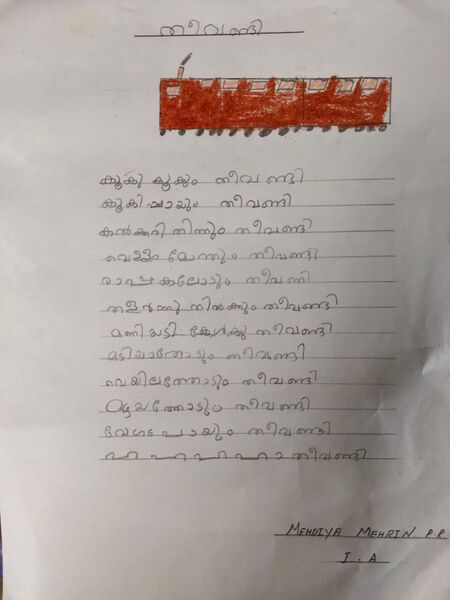 തീവണ്ടി
കൂകൂ കൂകും തീവണ്ടി
കൂകി പ്പായും തീവണ്ടി
കൽക്കരി തിന്നും തീവണ്ടി
വെള്ളം മോന്തും തീവണ്ടി
രാപ്പകലോടും തീവണ്ടി
തളർന്നു നിൽക്കും തീവണ്ടി
മണിയടി കേൾക്കെ തീവണ്ടി
മടിയാതോടും തീവണ്ടി
വെയിലത്തോടും തീവണ്ടി
മഴയത്തോടും തീവണ്ടി
വേഗം പായും തീവണ്ടി
ഹ ഹ ഹ ഹാ തീവണ്ടി
MEHDIYA MEHRIN. P.P
I. A